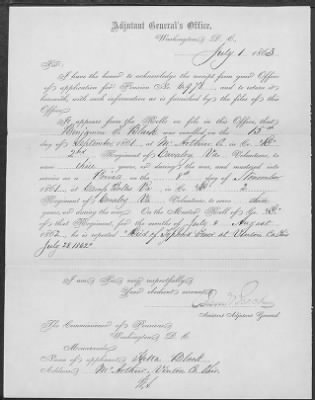 Adjutant General's Office,
Washington, D. C.
July 1, 1863
Sir:
I have the honor to acknowledge the receipt from your Office
of application for Pension No. 6978, and to return it
herewith, with such information as is furnished by the files of this
Office.
It appears from the Rolls on file in this Office, that
Benjamin C. Black was enrolled on the 15th
day of September 1861, at McArthur O. in Co.
2nd Regiment of Cavalry Va. Volunteers, to
serve three years, or during the war, and mustered into
service as a Private on the 8th day of November
1861, at Camp Va. in Co. 2
Regiment of Cavalry Va. Volunteers, to serve three
years, or during the war. On the Muster Roll of Co.
of that Regiment, for the months of July & August
1862, he is reported "Died of Typhoid Fever at Vinton Co Ohio
July 28 1862"
I am, Sir, very respectfully,
Your obedient servant,
Assistant Adjutant General.
The Commissioner of Pensions,
Washington, D. C.
Memoranda:
Name of applicant, Black
Address, McArthur, Vinton Co. Ohio